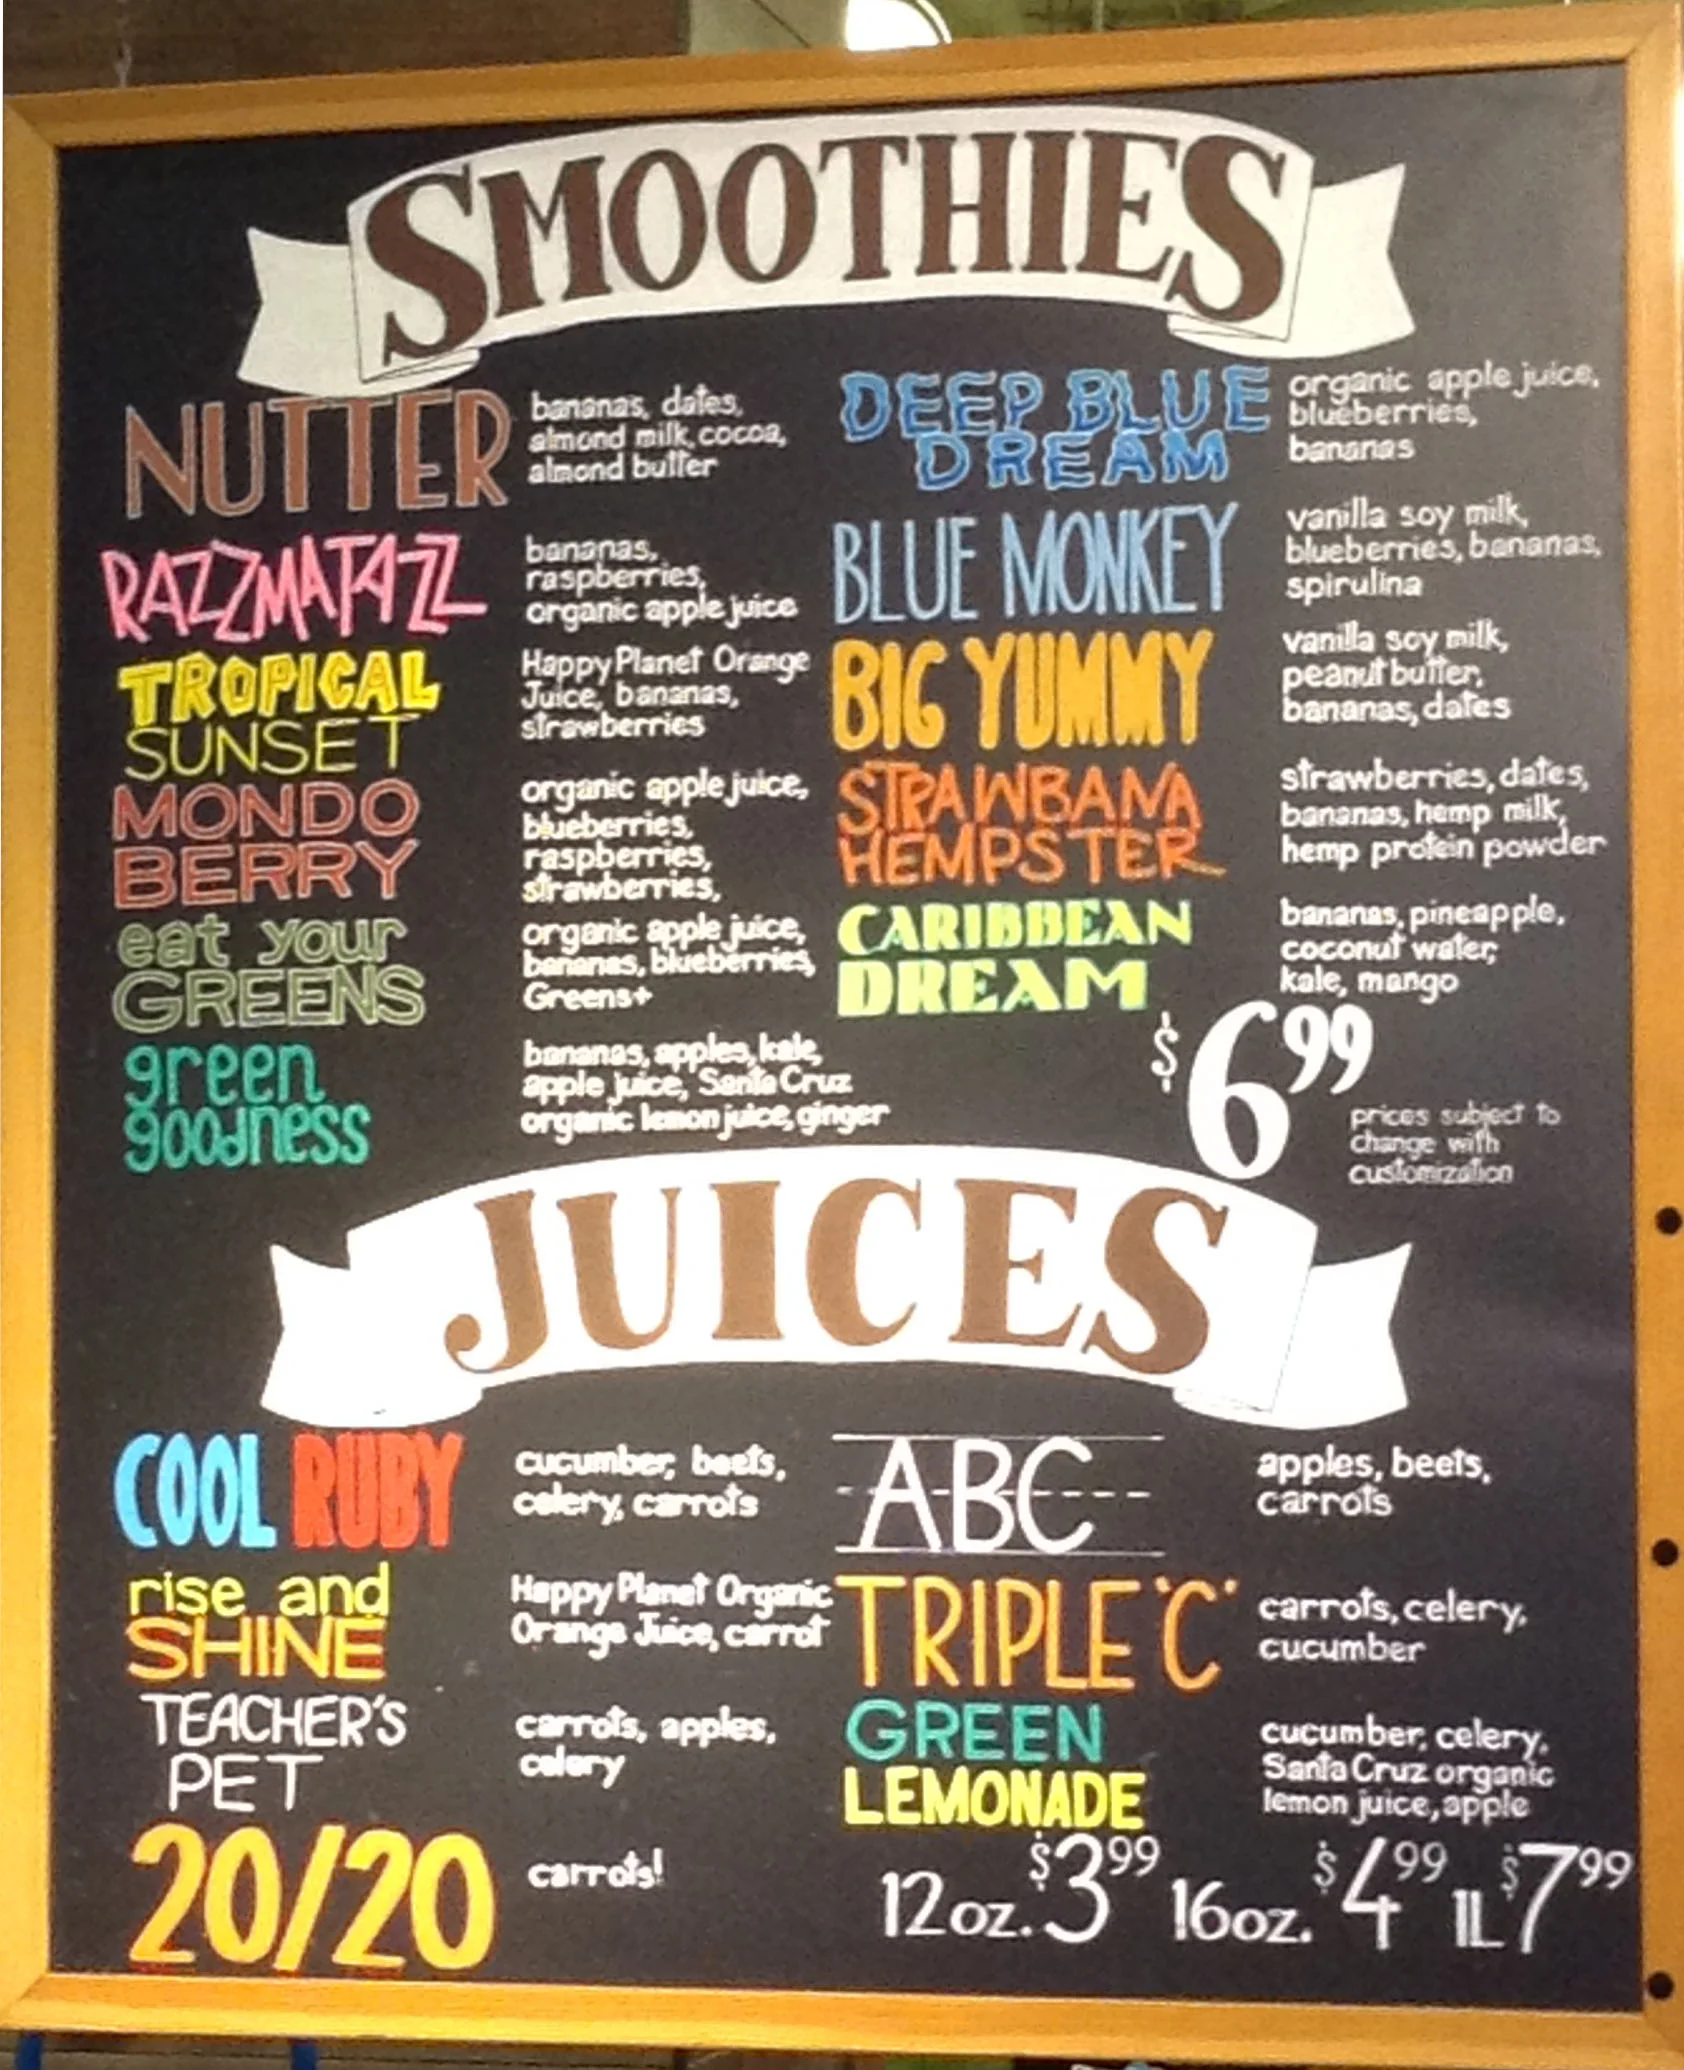 SMOOTHIES
NUTTER
bananas, dates,
almond milk, cocoa,
almond butter
RAZZMATAZZ
bananas,
raspberries,
organic apple juice
TROPICAL
SUNSET
Happy Planet Orange
Juice, bananas,
strawberries
MONDO
BERRY
organic apple juice,
blueberries,
raspberries,
strawberries,
eat your
GREENS
organic apple juice,
bananas, blueberries,
Greens+
green
goodness
bananas, apples, kale,
apple juice, Santa Cruz
organic lemon juice, ginger
DEEP BLUE
DREAM
organic apple juice,
blueberries,
bananas
BLUE MONKEY
vanilla soy milk,
blueberries, bananas,
spirulina
BIG YUMMY
vanilla soy milk,
peanut butter,
bananas, dates
STRAWBANA
HEMPSTER
strawberries, dates,
bananas, hemp milk,
hemp protein powder
CARIBBEAN
DREAM
bananas, pineapple,
coconut water,
kale, mango
$6.99
prices subject to
change with
customization
JUICES
COOL RUBY
cucumber, beets,
celery, carrots
rise and
SHINE
Happy Planet Organic
Orange Juice, carrot
TEACHER'S
PET
carrots, apples,
celery
20/20
carrots!
ABC
apples, beets,
carrots
TRIPLE 'C'
carrots, celery,
cucumber
GREEN
LEMONADE
cucumber, celery,
Santa Cruz organic
lemon juice, apple
12oz. $3.99 16oz. $4.99 1L $7.99